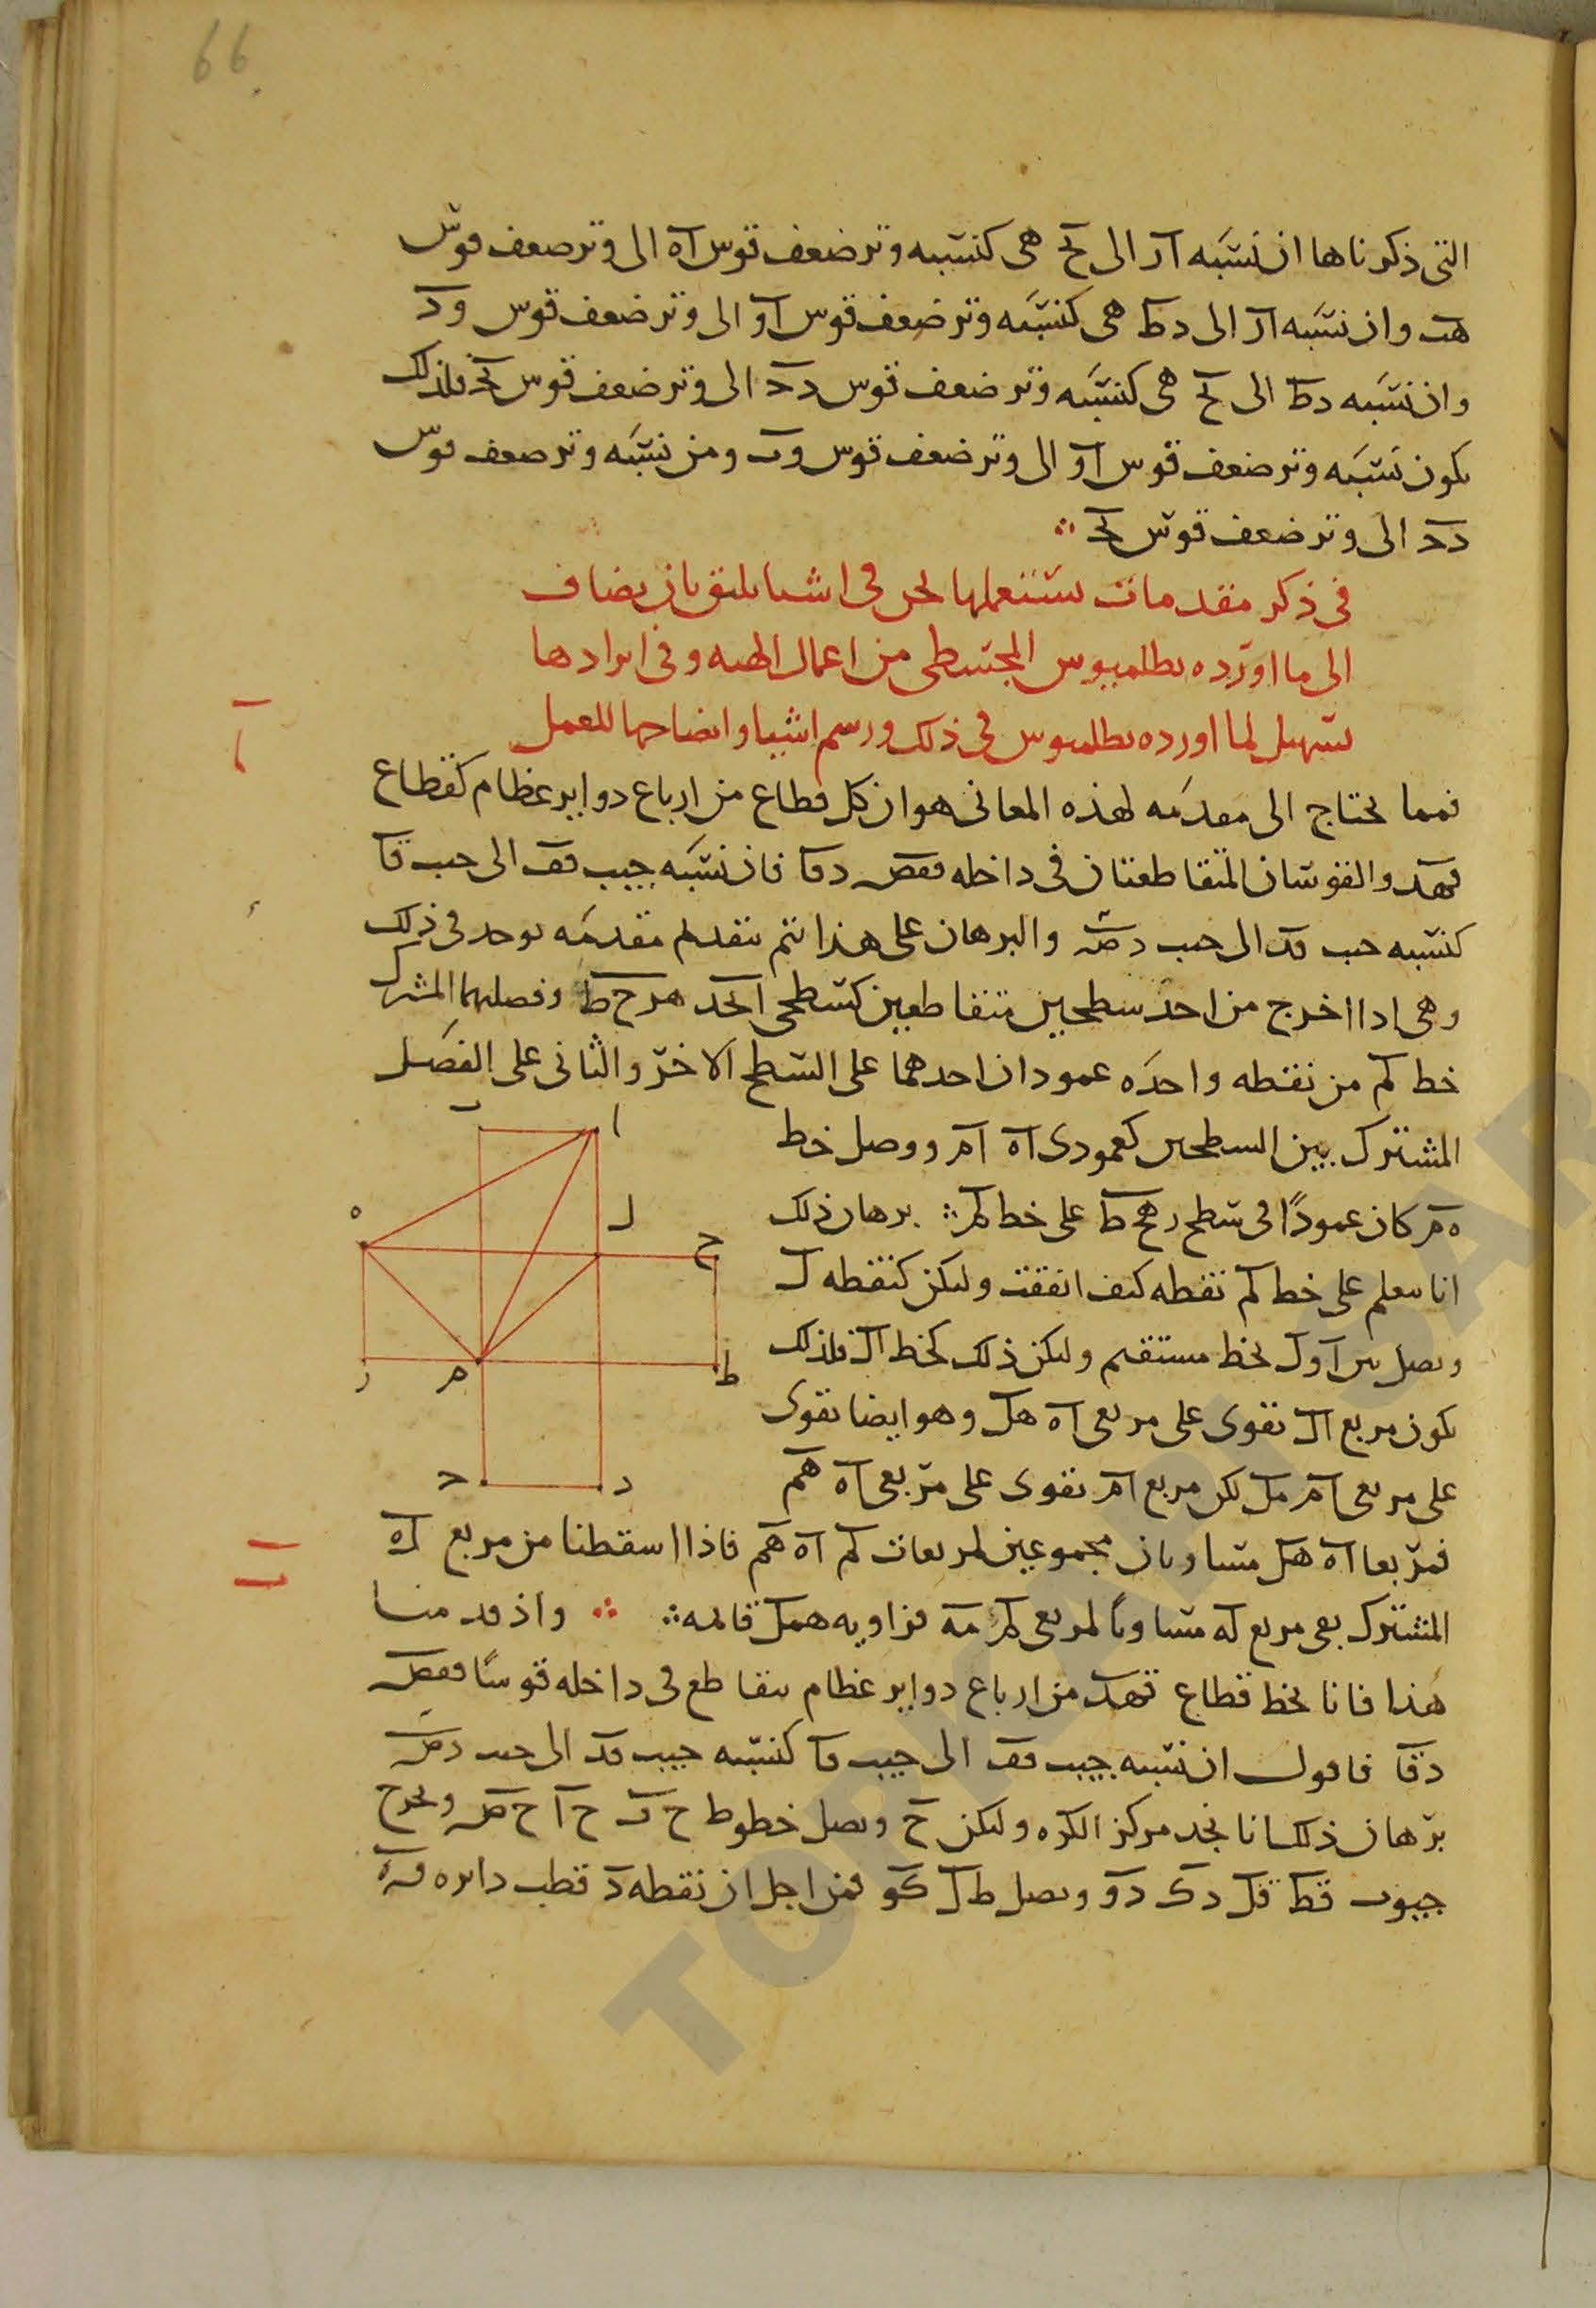 66
التى ذكرناها ان نسبه ار الى ﺣ هى كنسبه وتر ضعف قوس اه الى وتر ضعف قوس
هب وان نسبه ار الى دط هى كنسبه وتر ضعف قوس او الى وتر ضعف قوس ود
وان نسبه دط الى هى كنسبه وتر ضعف قوس دح الى وتر ضعف قوس فلذلك
يكون نسبه وتر ضعف قوس او الى وتر ضعف قوس وب ومن نسبه وتر ضعف قوس
دح الى وتر ضعف قوس
فى ذكر مقدمات نستعملها نحن فى اشيا يليق بان يضاف
الى ما اورده بطلميوس المجسطى من اعمال الهيه وفى ايرادها
تسهيل لما اورده بطلميوس فى ذلك ورسم اشيا وايضاحها للعمل
ا
فمما نحتاج الى مقدمه لهذه المعانى هو ان كل قطاع من ارباع دواير عظام كقطاع
قهد والقوسان المتقاطعتان فى داخله دقا فان نسبه جيب الى جيب قا
كنسبه جيب قد الى جيب دص والبرهان على هذا يتم بتقديم مقدمه يوجد فى ذلك
وهى اذا اخرج من احد سطحين متقاطعين كسطحى ابجد هزحط وفصلهما المشترك
خط لم من نقطه واحده عمودان احدهما على السطح الاخر والثانى على الفصل
المشترك بين السطحين كعمودى اه ام ووصل خط
هم كان عمودًا فى سطح زهحط على خط لم برهان ذلك
انا نعلم على خط لم نقطه كيف اتفقت وليكن كنقطه ل
ونصل بين ا ول بخط مستقيم وليكن ذلك كخط ال فلذلك
يكون مربع ال يقوى على مربعى اه هل وهو ايضا يقوى
على مربعى ام مل لكن مربع ام يقوى على مربعى اه هم
ب ا ه ل ح ز م ط ج د
فمربعا اه هل متساويان مجموعين لمربعات لم اه هم فاذا اسقطنا من مربع اه
المشترك بقى مربع له مساويًا لمربعى لم مه فزاويه همل قائمه واذ قدمنا
هذا فانا نخط قطاع قهد من ارباع دواير عظام يتقاطع فى داخله قوسا
دقا فاقول ان نسبه جيب الى جيب قا كنسبه جيب قد الى جيب دص
برهان ذلك انا نجد مركز الكره وليكن ح ونصل خطوط ح د ح ا ح ص ونخرج
جيوب قط قل دك دو ونصل طل كو فمن اجل ان نقطه د قطب دايره قه